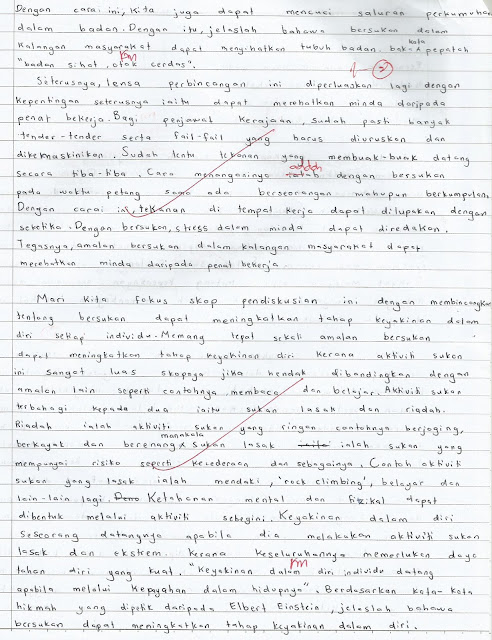 Dengan cara ini, kita juga dapat mencuci saluran perkumuhan
dalam badan. Dengan itu, jelaslah bahawa bersukan dalam
kalangan masyarakat dapat menyihatkan tubuh badan. bak kata pepatah
"badan sihat, otak cerdas".
Seterusnya, lensa perbincangan ini diperluaskan lagi dengan
kepentingan seterusnya iaitu dapat merehatkan minda daripada
penat bekerja. Bagi penjawat kerajaan, sudah pasti banyak
tender-tender serta fail-fail yang harus diuruskan dan
dikemaskinikan. Sudah tentu tekanan yang membuak-buak datang
secara tiba-tiba. Cara menangasinya adalah dengan bersukan
pada waktu petang sama ada berseorangan mahupun berkumpulan.
Dengan cara ini, tekanan di tempat kerja dapat dilupakan dengan
seketika. Dengan bersukan, stress dalam minda dapat diredakan.
Tegasnya, amalan bersukan dalam kalangan masyarakat dapat
merehatkan minda daripada penat bekerja
Mari kita fokus skop pendiskusian ini dengan membincangkan
tentang bersukan dapat meningkatkan tahap keyakinan dalam
diri setiap individu. Memang tepat sekali amalan bersukan
dapat meningkatkan tahap keyakinan diri kerana aktiviti sukan
ini sangat luas skopnya jika hendak dibandingkan dengan
amalan lain seperti contohnya, membaca dan belajar. Aktiviti sukan
terbahagi kepada dua iaitu sukan lasak dan riadah.
Riadah ialah aktiviti sukan yang ringan contohnya berjoging,
berkayak dan berenang manakala sukan lasak ialah sukan yang
mempunyai risiko seperti kecederaan dan sebagainya. Contoh aktiviti
sukan yang lasak ialah mendaki, 'rock climbing', belayar dan
lain-lain lagi. Ketahanan mental dan fizikal dapat
dibentuk melalui aktiviti sebegini. Keyakinan dalam diri
seseorang datangnya apabila dia melakukan aktiviti sukan
lasak dan ekstrem. kerana keseluruhannya memerlukan daya
tahan diri yang kuat. "Keyakinan dalam diri individu datang
apabila melalui kepayahan dalam hidupnya". Berdasarkan kata-kata
hikmah yang dipetik daripada Elbert Einstein, jelaslah bahawa
bersukan dapat meningkatkan tahap keyakinan dalam diri.